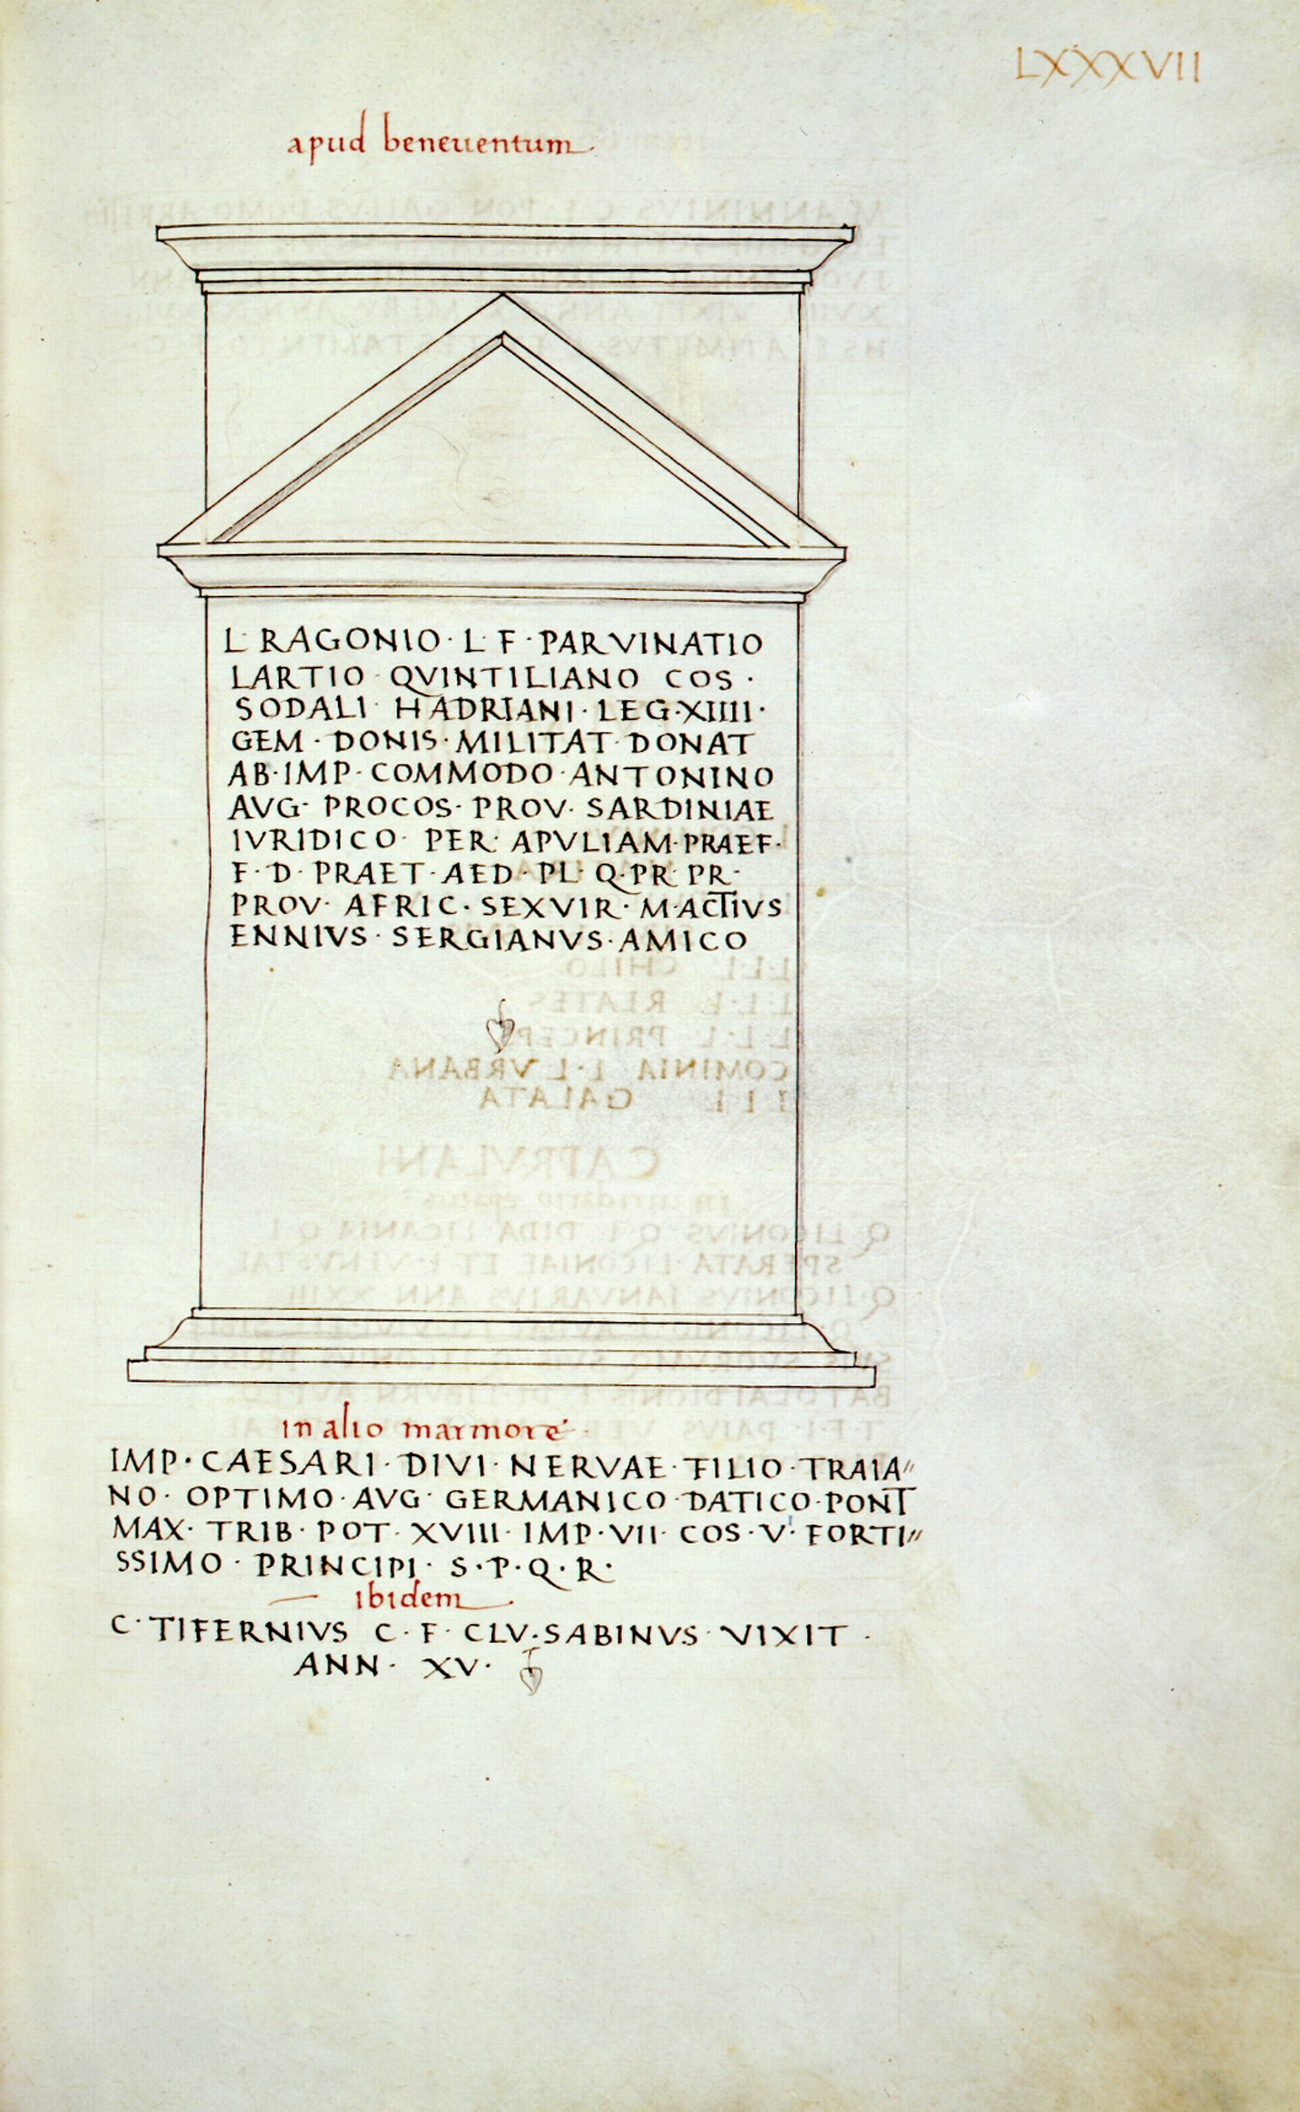 LXXXVII
apud beneuentum
L· RAGONIO· L· F· PARVINATIO
LARTIO QVINTILIANO COS·
SODALI· HADRIANI· LEG·XIIII·
GEM· DONIS· MILITAT· DONAT
AB· IMP· COMMODO· ANTONINO
AVG· PROCOS· PROV· SARDINIAE
IVRIDICO· PER· APVLIAM·PRAEF·
F· D· PRAET· AED· PL· Q·PR· PR·
PROV· AFRIC· SEXVIR· M·ACTIVS
ENNIVS· SERGIANVS· AMICO
in alio marmore
IMP· CAESARI· DIVI· NERVAE· FILIO· TRAIA//
NO· OPTIMO· AVG· GERMANICO· DATICO·PONT
MAX· TRIB· POT· XVIII· IMP· VII· COS· V'· FORTI//
SSIMO· PRINCIPI· S·P·Q·R·
ibidem
C· TIFERNIVS C· F· CLV·SABINVS· VIXIT·
ANN· XV·